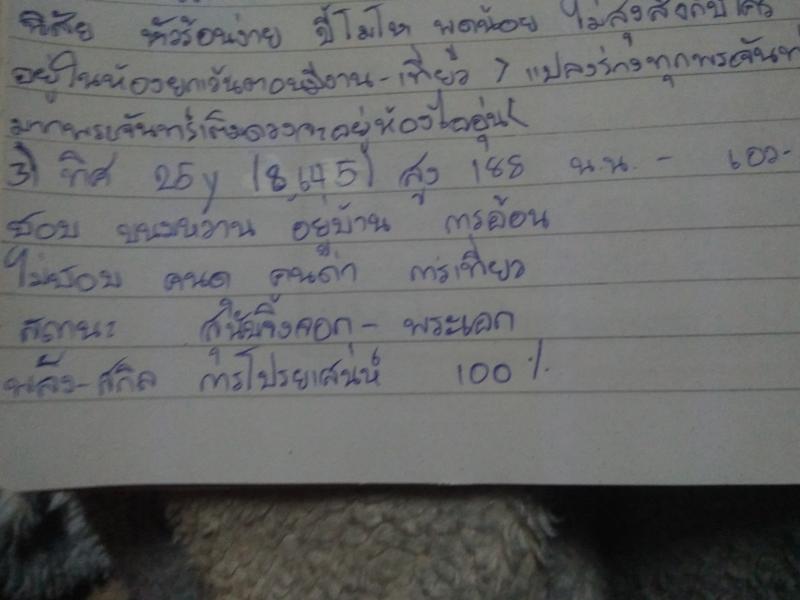 นิสัย หัวร้อนง่าย ขี้โมโห พูดน้อย ไม่สุงสิงกับใคร
อยู่ในห้องยกเว้นตอนมีงาน-เที่ยว > แปลงร่างทุกพระจันทร์
มากพระจันทร์เต็มดวงจะอยู่ห้องไออุ่น<
3) ทิศ 25y (8,645) สูง 188 น.น. - เอว-
ชอบ ขนมหวาน อยู่บ้าน การอ้อน
ไม่ชอบ คนด่า การเที่ยว
สถานะ สุนัขจิ้งจอก - พระเอก
พลัง-สกิล การโปรยเสน่ห์ 100 %